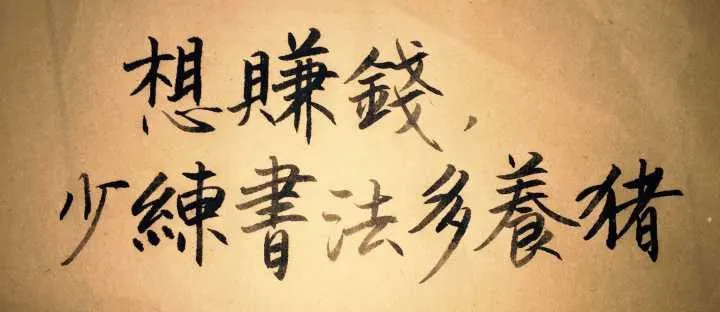 想賺錢，
少練書法多養猪